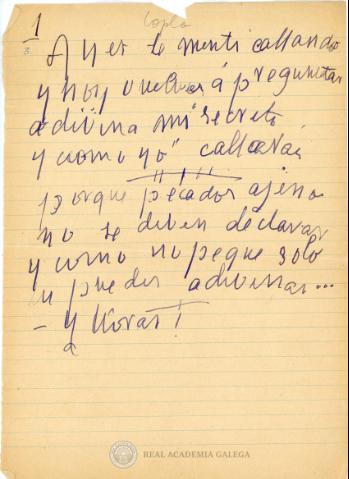 1
Copla
Ayer te mentí callando
y hoy vuelves á preguntar
adivina mi secreto
y como yo callarás
porque pecados ajenos
no se deben declarar
y como no peque solo
puedes adivinar...
- y llorar!
a
REAL ACADEMIA GALEGA